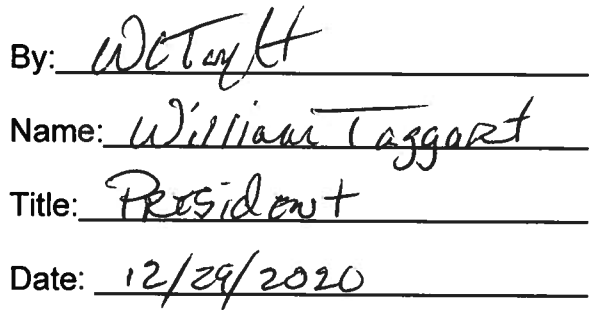 By:
Name: William Taggart
Title: President
Date: 12/29/2020